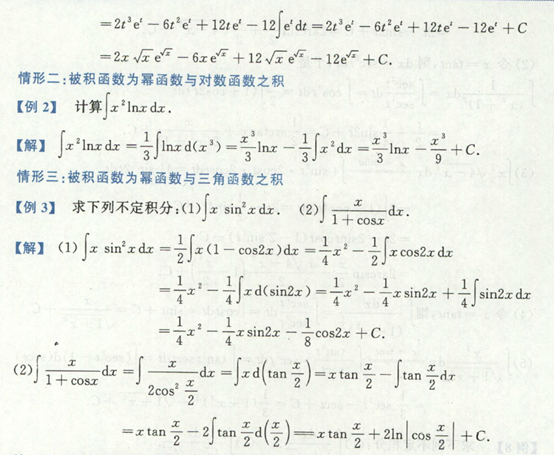 =2t³eᵗ－6t²eᵗ+12teᵗ－12∫eᵗdt=2t³eᵗ－6t²eᵗ+12teᵗ－12eᵗ+C
=2x√x e^{√x}－6xe^{√x}+12√x e^{√x}－12e^{√x}+C.
情形二:被积函数为幂函数与对数函数之积
【例 2】 计算∫x²lnxdx.
【解】 ∫x²lnxdx=\frac{1}{3}∫lnxd(x³)=\frac{x³}{3}lnx－\frac{1}{3}∫x²dx=\frac{x³}{3}lnx－\frac{x³}{9}+C.
情形三:被积函数为幂函数与三角函数之积
【例 3】 求下列不定积分:(1)∫x sin²xdx. (2)∫\frac{x}{1+cosx}dx.
【解】 (1)∫x sin²xdx=\frac{1}{2}∫x(1－cos2x)dx=\frac{1}{4}x²－\frac{1}{2}∫xcos2xdx
=\frac{1}{4}x²－\frac{1}{4}∫xd(sin2x)=\frac{1}{4}x²－\frac{1}{4}xsin2x+\frac{1}{4}∫sin2xdx
=\frac{1}{4}x²－\frac{1}{4}xsin2x－\frac{1}{8}cos2x+C.
(2)∫\frac{x}{1+cosx}dx=∫\frac{x}{2cos²\frac{x}{2}}dx=∫xd(tan\frac{x}{2})=xtan\frac{x}{2}－∫tan\frac{x}{2}dx
=xtan\frac{x}{2}－2∫tan\frac{x}{2}d(\frac{x}{2})=xtan\frac{x}{2}+2ln|cos\frac{x}{2}|+C.